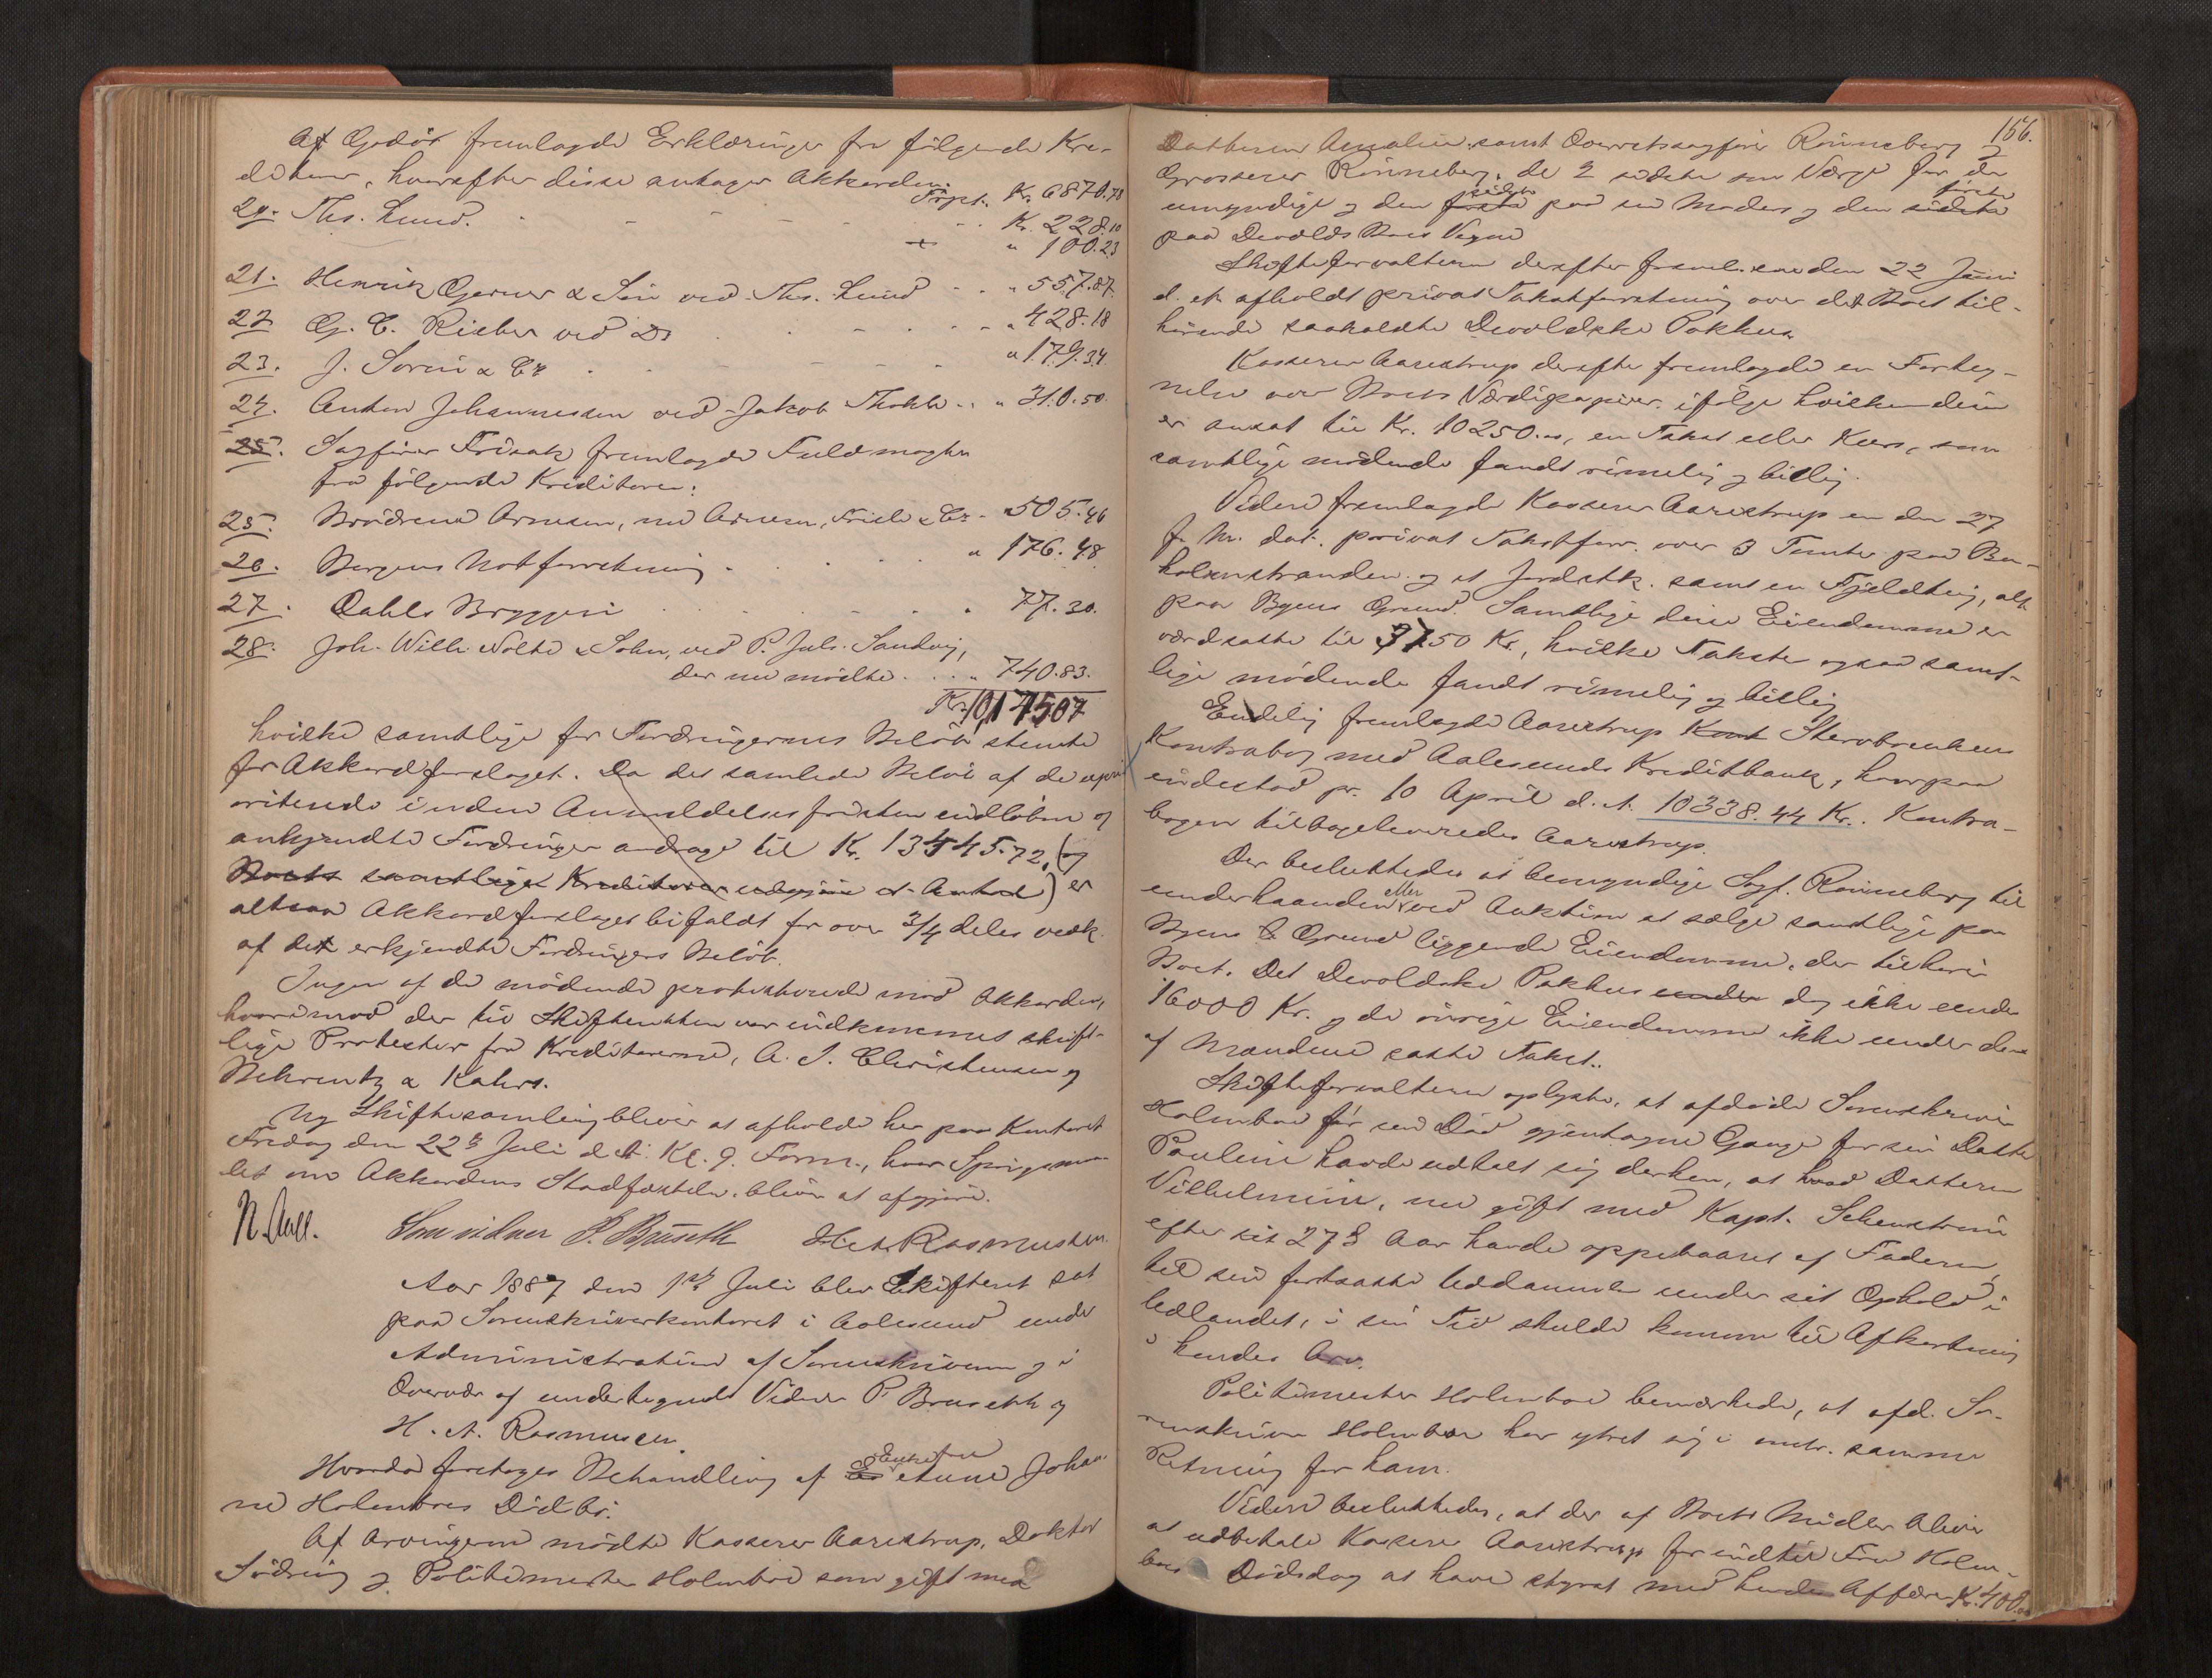 Af Gjedör fremlagde Erklæringer fra følgende Kre-
ditorer, hvorefter disse antager Akkorden:
Trpt. Kr. 6870.78
20. Ths. Lund. Kr. 228.10
" 100.23
21. Henrik Gerner & Søn ved Ths. Lund " 557.87
22 G. C. Rieber ved Do " 428.18
23. J. & Co " 179.34
24. Anton Johannessen ved Jakob " 310.50.
25. Sagfører Frisak fremlagde Fuldmagter
fra følgende Kreditorer:
25. Brødrene Arnesen, nu Arnesen, & Co " 505.46
26. Bergens Notforretning " 176.48
27. Dahls Bryggeri " 77.30.
28. Joh. Wilh. Nolte & Sohn, ved P. Juls. Sandvig,
der nu mødte " 740.83.
Kr. 10,174507
hvilke samtlige for Fordringernes Beløb stemte
for Akkordforslaget. Da det samlede Beløb af de upri
oriterede inden Anmeldelsesfristen indløbne og
ankjendte Fordringer andrage til Kr. 13445.72, (og
Boets samtlige Kreditorer udgjøre et Antal) er
altsaa Akkordforslaget bifaldt for over 3/4 deles vedk.
af det erkjendte Fordringers Beløb.
Ingen af de mødende protesterede mod Akkorden,
hvorimod der til Skifteretten var indkommet skrift-
lige Protester fra Kreditorerne, A. S. Christensen og
Behrentz & Kahrs.
Ny Skiftesamling bliver at afholde her paa Kontoret
Fredag den 22de Juli d. A. Kl. 9. Form., hvor Spørgsmaa-
let om Akkordens Stadfæstelse bliver at afgjøre.
N. Aall. Som vidner P. Bruseth H. A. Rasmussen.
Aar 1887 den 1ste Juli blev Skifteret sat
paa Sorenskriverkontoret i Aalesund under
Administration af Sorenskriveren og i
Overvær af undertegnede Vidner P. Bruseth og
H. A. Rasmussen.
Hvorda foretages Behandling af Enkefru Anne Johan
ne Holmboes Dødbo.
Af Arvingerne mødte Kasserer Aarestrup, Doktor
Södring og Politimester Holmboe som gift med
156.
Datteren Amalie. samt Overretssagfører Rönneberg og
Grosserer Rönneberg, de 2 sidste som Værge for de
umyndige og den første sidste paa sin Moders og den sidste første
paa Devolds Boes Vegne
Skifteforvalteren derefter freml. en den 22 Juni
d. A. afholdt privat Takstforretning over det Boet til-
hørende saakaldte Devoldske Pakhus.
Kasserer Aarestrup derefter fremlagde en Forteg-
nelse over Boets Værdipapirer, ifølge hvilken disse
er ansat til Kr. 10250.00, en Takst eller Kurs, som
samtlige mødende fandt rimelig og billig.
Videre fremlagde Kasserer Aarestrup en den 27
f. M. dat. privat Takstforr. over 3 Tomter paa Bu-
holmstranden og et Jordstk. samt en Fjeldteig, alt
paa Byens Grund. Samtlige disse Eiendomme er
værdsatte til 3750 Kr., hvilke Takster ogsaa samt-
lige mødende fandt rimelig og billig
Endelig fremlagde Aarestrup Kont Stervboenkens
Kontrabog med Aalesunds Kreditbank, hvorpaa
indestod pr. 10 April d. A. 10338.44 Kr. Kontra-
bogen tilbageleveredes Aarestrup.
Der besluttedes at bemyndige Sagf. Rönneberg til
underhaanden eller ved Auktion at sælge samtlige paa
Byens Grund liggende Eiendomme, der tilhører
Boet. Det Devoldske Pakhus under dog ikke under
16000 Kr. og de øvrige Eiendomme ikke under den
af Mændene satte Takst.
Skifteforvalteren oplyste, at afdøde Sorenskriver
Holmboe før sin Død gjentagne Gange for sin Datter
Pauline havde udtalt sig derhen, at hvad Datteren
Vilhelmine, nu gift med Kapt.
efter sit 27de Aar havde oppebaaret af Faderen
til sin fortsatte Uddannelse under sit Ophold i
Udlandet, i sin Tid skulde komme til Afkortning
i hendes Arv.
Politimester Holmboe bemærkede, at afd. So-
renskriver Holmboe har ytret sig i omtr. samme
Retning for ham.
Videre besluttedes, at der af Boets Midler bliver
at udbetale Kasserer Aarestrup for indtil Fru Holm-
boes Dødsdag at have styret med hendes Affærer Kr. 400.00